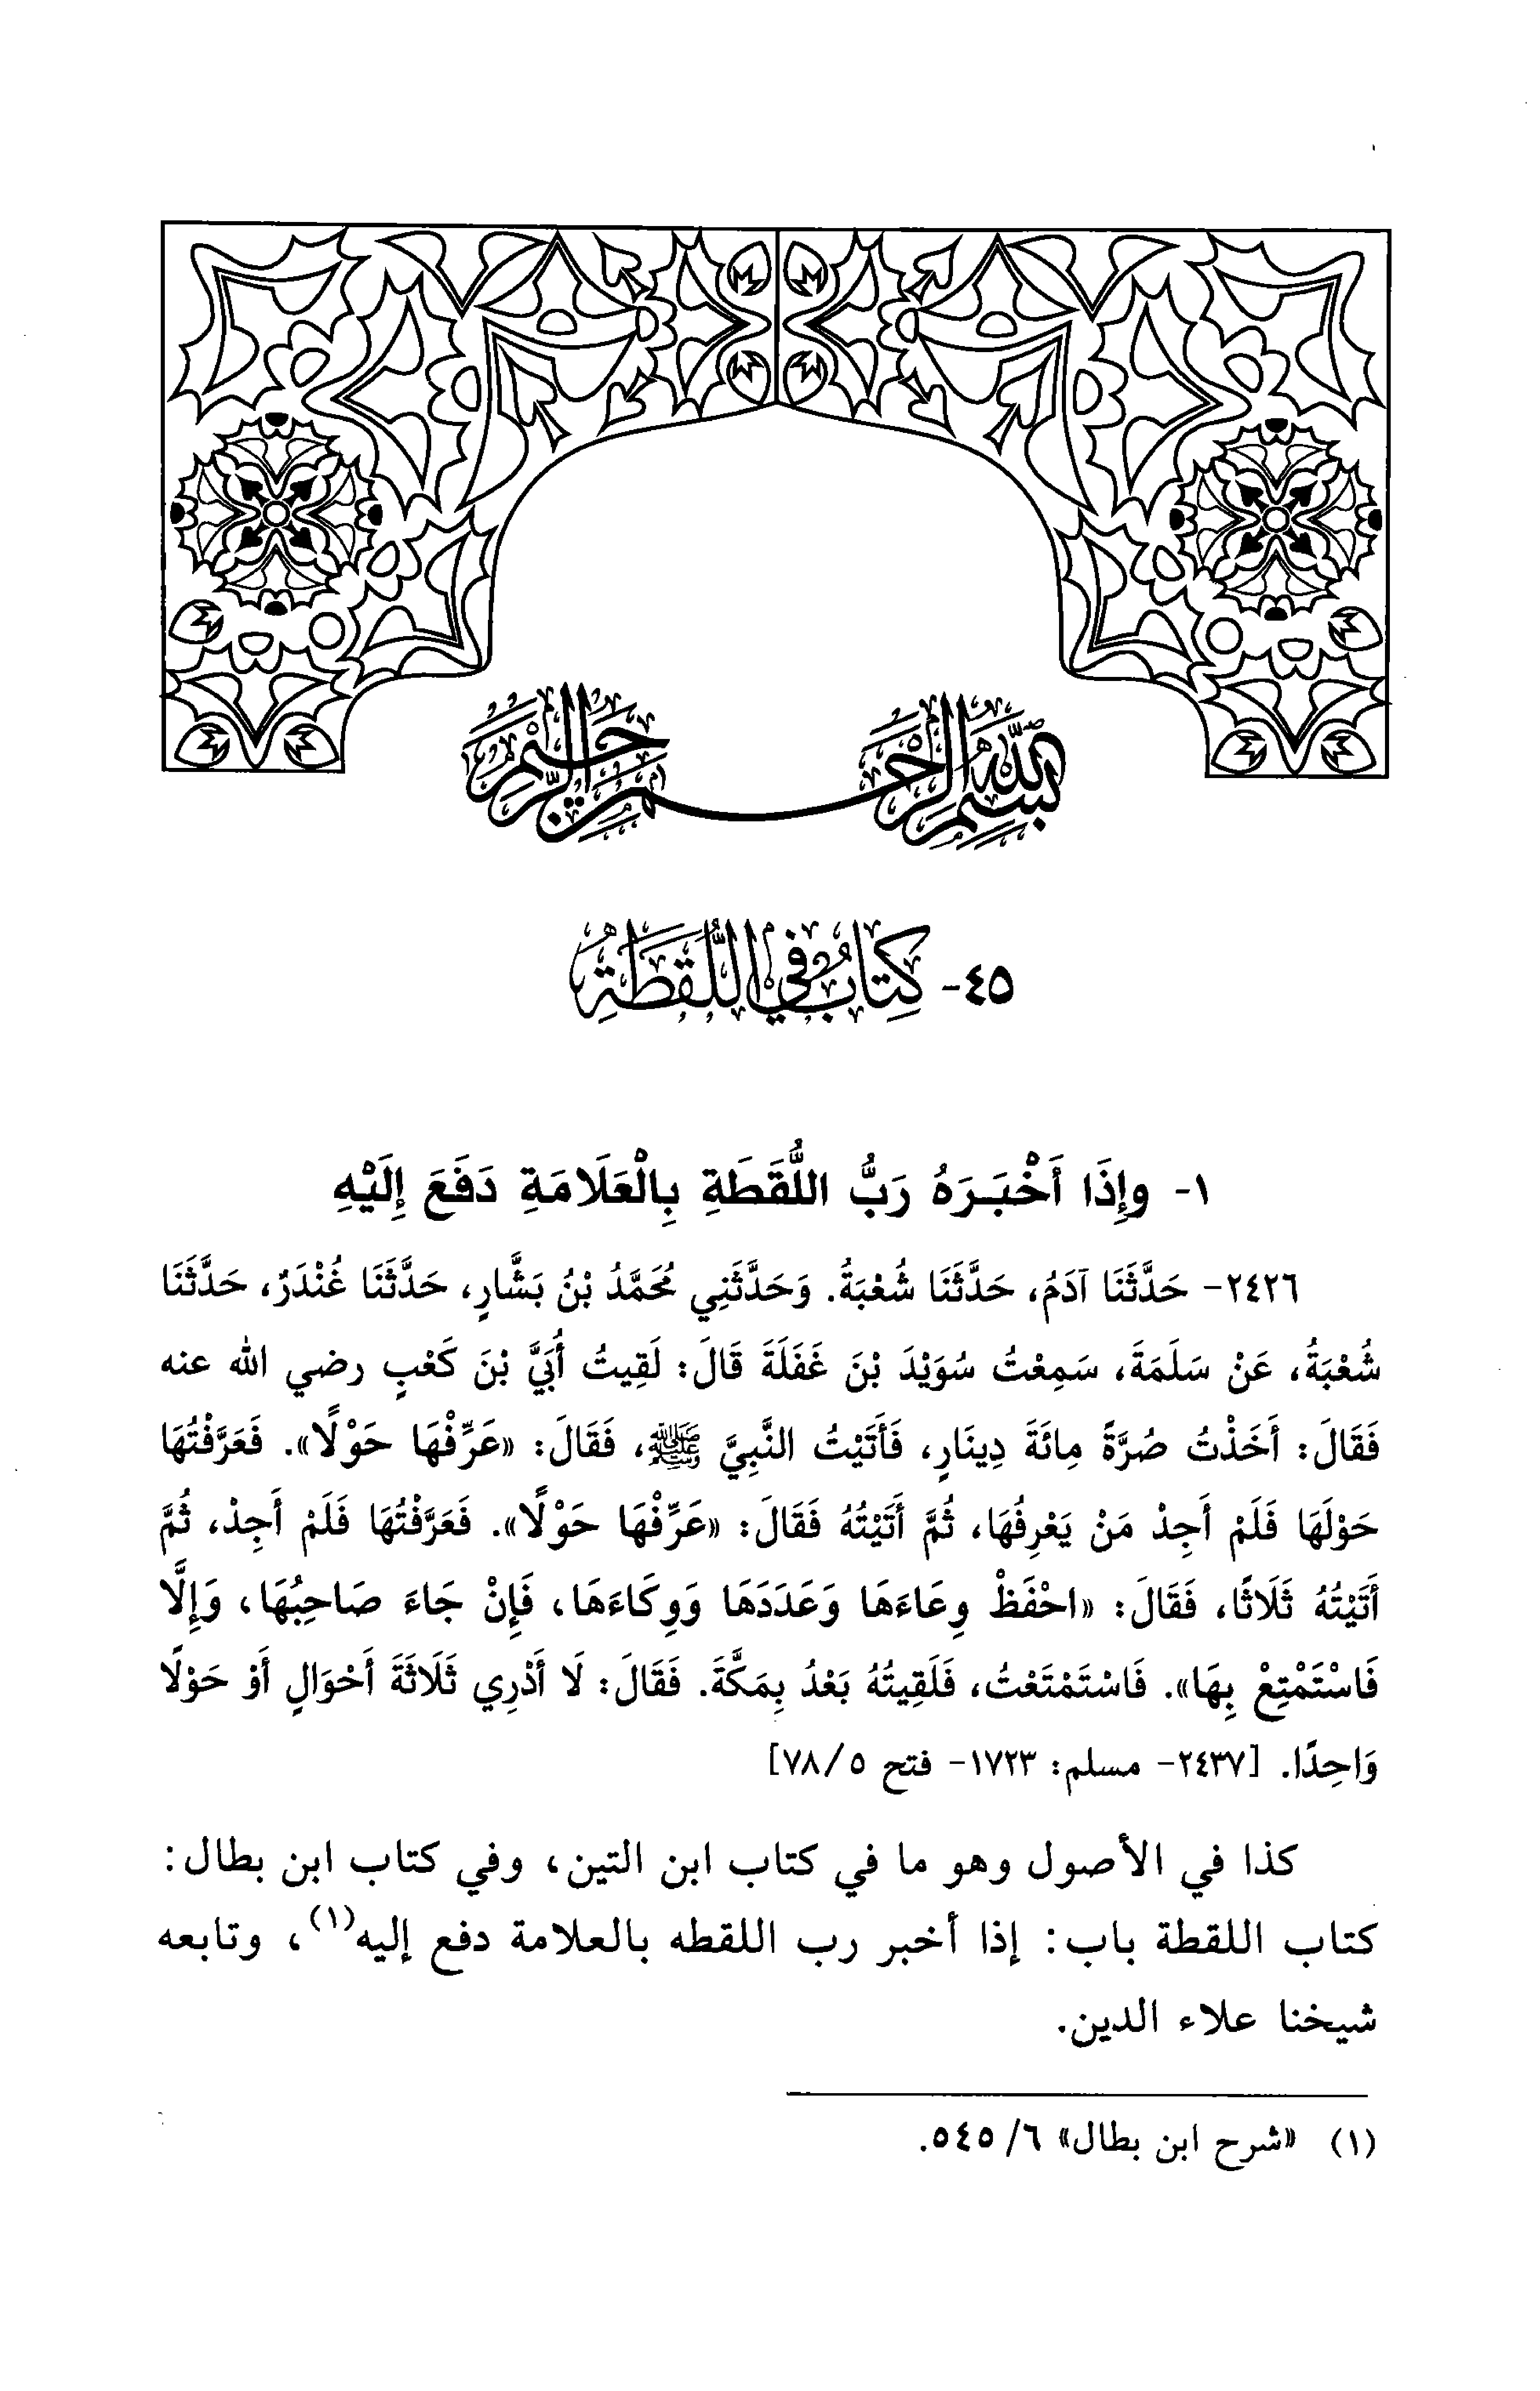 بسم الله الرحمن الرحيم
٤٥- كِتَابٌ فِي اللُّقَطَةِ
١- وإِذَا أَخْبَرَهُ رَبُّ اللُّقَطَةِ بِالْعَلَامَةِ دَفَعَ إِلَيْهِ
٢٤٢٦- حَدَّثَنَا آدَمُ، حَدَّثَنَا شُعْبَةُ. وَحَدَّثَنِي مُحَمَّدُ بْنُ بَشَّارٍ، حَدَّثَنَا غُنْدَرٌ، حَدَّثَنَا
شُعْبَةُ، عَنْ سَلَمَةَ، سَمِعْتُ سُوَيْدَ بْنَ غَفَلَةَ قَالَ: لَقِيتُ أُبَيَّ بْنَ كَعْبٍ رضي الله عنه
فَقَالَ: أَخَذْتُ صُرَّةً مِائَةَ دِينَارٍ، فَأَتَيْتُ النَّبِيَّ ﷺ، فَقَالَ: «عَرِّفْهَا حَوْلًا». فَعَرَّفْتُهَا
حَوْلَهَا فَلَمْ أَجِدْ مَنْ يَعْرِفُهَا، ثُمَّ أَتَيْتُهُ فَقَالَ: «عَرِّفْهَا حَوْلًا». فَعَرَّفْتُهَا فَلَمْ أَجِدْ، ثُمَّ
أَتَيْتُهُ ثَلَاثًا، فَقَالَ: «احْفَظْ وِعَاءَهَا وَعَدَدَهَا وَوِكَاءَهَا، فَإِنْ جَاءَ صَاحِبُهَا، وَإِلَّا
فَاسْتَمْتِعْ بِهَا». فَاسْتَمْتَعْتُ، فَلَقِيتُهُ بَعْدُ بِمَكَّةَ. فَقَالَ: لَا أَدْرِي ثَلَاثَةَ أَحْوَالٍ أَوْ حَوْلًا
وَاحِدًا. [٢٤٣٧- مسلم: ١٧٢٣- فتح ٥/٧٨]
كذا في الأصول وهو ما في كتاب ابن التين، وفي كتاب ابن بطال:
كتاب اللقطة باب: إذا أخبر رب اللقطه بالعلامة دفع إليه(١)، وتابعه
شيخنا علاء الدين.
(١) «شرح ابن بطال» ٦/ ٥٤٥.